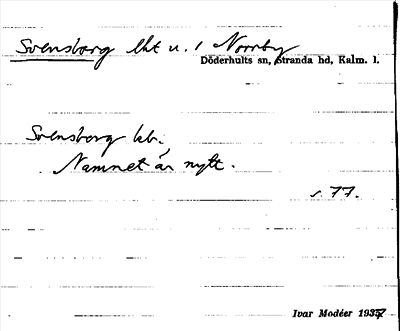 Svensborg lht u. 1 Norrby
Döderhults sn, Stranda hd, Kalm. l.
Svensborg lob.
Namnet är nytt.
s. 77.
Ivar Modéer 1937